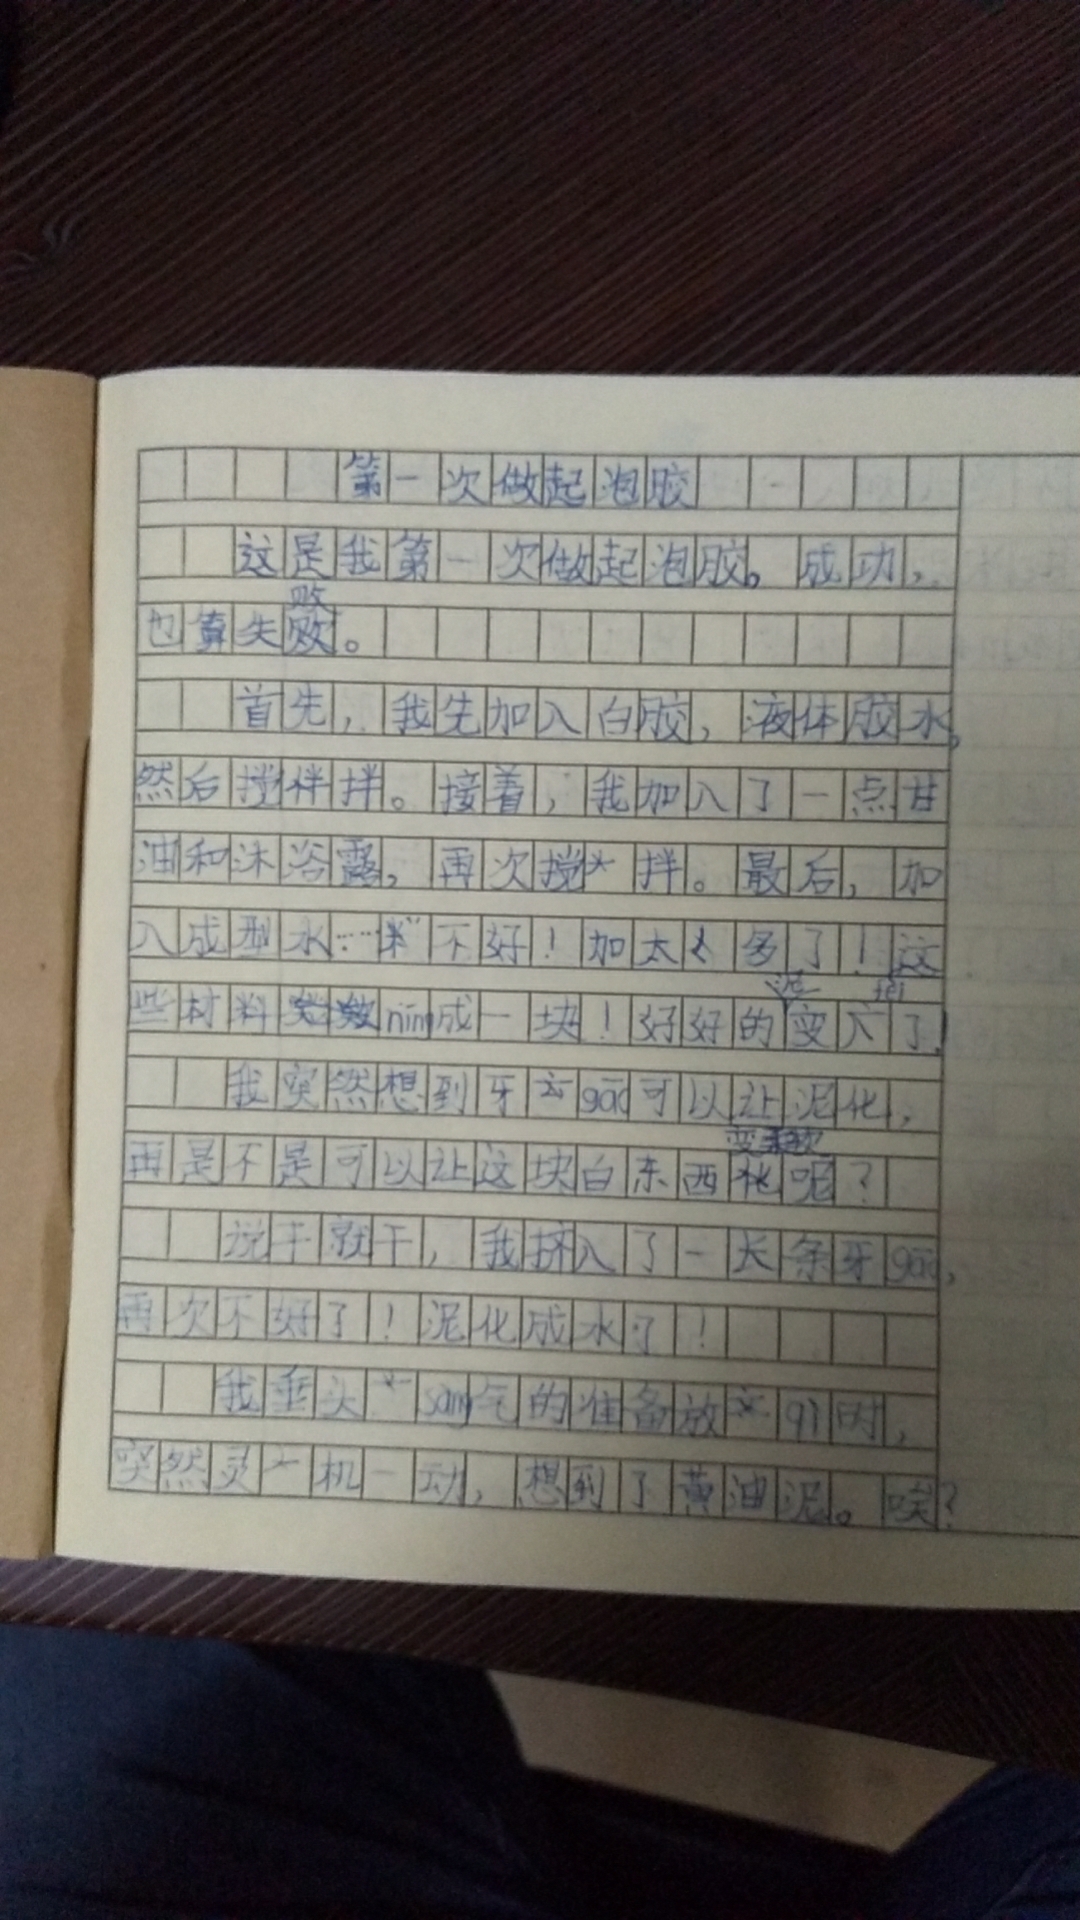 第一次做起泡胶
这是我第一次做起泡胶。成功,
败
也算失败。
首先,我先加入白胶,液体胶水,
然后搅拌拌。接着,我加入了一点甘
油和沐浴露,再次搅拌。最后,加
入成型水……不好!加太多了!这
泥 fèi
些材料níng成一块!好好的变了!
我突然想到牙gāo可以让泥化,
变柔软
再是不是可以让这块白东西化呢?
说干就干,我挤入了一长条牙gāo,
再次不好了!泥化成水了!
我垂头sàng气的准备放qì时,
突然灵机一动,想到了黄油泥。唉?